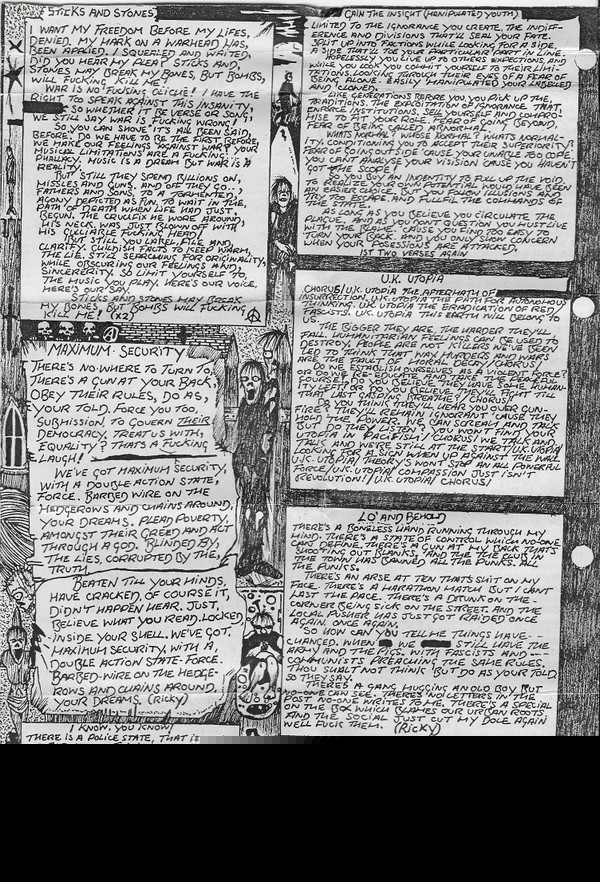 STICKS AND STONES
I WANT MY FREEDOM BEFORE MY LIFES,
DENIED. MY MARK ON A WARHEAD HAS,
BEEN APPLIED. I SQUEALED AND WAITED,
DID YOU HEAR MY PLEA? STICKS AND,
STONES MAY BREAK MY BONES, BUT BOMBS,
WILL FUCKING KILL ME!
WAR IS NO FUCKING CLICHE! I HAVE THE
RIGHT TO SPEAK AGAINST THIS INSANITY,
SO WHETHER IT BE VERSE OR SONG,
WE STILL SAY WAR IS FUCKING WRONG!
SO YOU CAN SHOVE "IT'S ALL BEEN SAID,
BEFORE, DO WE HAVE TO BE THE FIRST BEFORE,
WE MAKE OUR FEELINGS AGAINST WAR? YOUR
MUSICAL LIMITATIONS ARE A FUCKING
PHALACY. MUSIC IS A DREAM BUT WAR IS A
REALITY.
BUT STILL THEY SPEND BILLIONS ON,
MISSLES AND GUNS. AND OFF THEY GO..,
FATHERS AND SONS, TO A TORMENTED,
AGONY DEPICTED AS FUN. TO WAIT IN THE,
PATH OF DEATH WHEN LIFE HAD JUST,
BEGUN. THE CRUCIFIX HE WORE AROUND,
HIS NECK, WAS JUST BLOWN OFF WITH
HIS FUCKING HEAD.
BUT STILL YOU LABEL, FILE AND
CLARIFY. CHILDISH FACTS TO KEEP WARM,
THE LIE. STILL SEARCHING FOR ORIGINALITY,
WHILE OBSCURING OUR FEELINGS AND,
SINCERERITY. SO LIMIT YOURSELF TO,
THE MUSIC YOU PLAY. HERE'S OUR VOICE,
HERE'S OUR SAY.
STICKS AND STONES MAY BREAK
MY BONES BUT BOMBS WILL FUCKING
KILL ME! (X2)
MAXIMUM SECURITY
THERE'S NO-WHERE TO TURN TO,
THERE'S A GUN AT YOUR BACK,
OBEY THEIR RULES, DO AS,
YOUR TOLD. FORCE YOU TOO,
SUBMISSION, TO GOVERN THEIR
DEMOCRACY. TREAT US WITH,
EQUALITY? THATS A FUCKING
LAUGH!
WE'VE GOT MAXIMUM SECURITY,
WITH A DOUBLE ACTION STATE,
FORCE. BARBED WIRE ON THE
HEDGEROWS AND CHAINS AROUND,
YOUR DREAMS. PLEAD POVERTY,
AMONGST THEIR GREED AND ACT
THROUGH A GOD. BLINDED BY,
THE LIES, CORRUPTED BY THE,
TRUTH
BEATEN TILL YOUR MINDS,
HAVE CRACKED, OF COURSE IT,
DIDN'T HAPPEN HEAR. JUST,
BELIEVE WHAT YOU READ. LOCKED
INSIDE YOUR SHELL. WE'VE GOT,
MAXIMUM SECURITY, WITH A,
DOUBLE ACTION STATE-FORCE.
BARBED-WIRE ON THE HEDGE-
ROWS AND CHAINS AROUND,
YOUR DREAMS. (RICKY)
I KNOW, YOU KNOW
THERE IS A POLICE STATE, THAT IS
GAIN THE INSIGHT (MANIPULATED YOUTH)
LIMITED TO THE IGNORANCE YOU CREATE, THE INDIFF-
ERENCE AND DIVISIONS THAT'LL SEAL YOUR FATE.
SPLIT UP INTO FACTIONS WHILE LOOKING FOR A SIDE,
A SIDE THAT'LL TOE YOUR PARTICULAR PART IN LINE.
HOPELESSLY YOU LIVE UP TO OTHERS EXPECTIONS, AND
WHILE YOU LOOK YOU COMMIT YOURSELF TO THEIR LIMI-
TATIONS. LOOKING THROUGH THEIR EYES OF A FEAR OF
BEING ALONE. EASILY MANIPULATED YOUR LABELED
AND CLONED.
LIKE GENERATIONS BEFORE YOU YOU PICK UP THE
TRADITIONS. THE EXPLOITATION OF IGNORANCE THAT
ENFORCE INSTITUTIONS. SELL YOURSELF AND COMPRO-
MISE TO FIT YOUR ROLE. FEAR OF GOING BEYOND,
FEAR OF BEING CALLED ABNORMAL.
WHATS NORMAL? WHOSE NORMAL? WHATS NORMAL-
ITY, CONDITIONING YOU TO ACCEPT THEIR SUPERIORITY?
FEAR OF GOING OUTSIDE 'CAUSE YOUR UNABLE TOO COPE.
YOU CANT ANALYSE YOUR VISION 'CAUSE YOU HAVEN'T
GOT THE SCOPE!
YOU BUY AN INDENTITY TO FULL UP THE VOID,
TO REALIZE YOUR OWN POTENTIAL WOULD HAVE BEEN
AN EASIER CHOICE. BUT YOU FOLLOW ILLUSIONS AND
TRY TOO ESCAPE. AND FULLFIL THE COMMANDS OF
HATE.
AS LONG AS YOU BELIEVE YOU CIRCULATE THE
PLAGUE. AND IF YOU DONT QUESTION YOU MUST LIVE
WITH THE BLAME. 'CAUSE YOU FIND TOO EASY TO
TURN YOUR BACK. AND YOU ONLY SHOW CONCERN
WHEN YOUR POSESSIONS ARE ATTACKED.
1ST TWO VERSES AGAIN
U.K. UTOPIA
CHORUS/U.K. UTOPIA THE AFTERMATH OF
INSURRECTION. U.K. UTOPIA THE PATH FOR AUTONOMOUS
THINKING. U.K. UTOPIA THE ERADICATION OF RED/
FASCISTS. U.K. UTOPIA THIS EARTH WILL BELONG TO
US.
THE BIGGER THEY ARE, THE HARDER THEY'LL
FALL. HUMANITARIAN FEELINGS CAN BE USED TO
DESTROY. PEOPLE ARE NOT KILLERS WE'VE BEEN
LED TO THINK THAT WAY. MURDERS AND WARS
ARE THE FAULT OF MORAL DECAY/CHORUS/
DO WE ESTABLISH OURSELVES AS A VIOLENT FORCE?
OR DO WE EDUCATE AND
COURSE? DO YOU BELIEVE THEY HAVE SOME HUMAN-
ITY LEFT? OR DO YOU BELIEVE THEY'LL FIGHT TILL
THAT LAST GASPING BREATHE? /CHORUS/
DO YOU THINK THEY'LL HEAR YOU OVER GUN-
FIRE? THEY'LL REMAIN IGNORANT 'CAUSE THEY
HOLD THE POWER. WE CAN SCREAM AND TALK
BUT DO THEY LISTEN? YOU WON'T FIND YOUR
UTOPIA IN PACIFISM/CHORUS/WE TALK AND,
TALK AND WE'RE STILL AT THE START/U.K. UTOPIA
LOOKING FOR A SIGN WHEN UP AGAINST THE WALL
U.K. UTOPIA/THEORY'S WON'T STOP AN ALL POWERFUL
FORCE/U.K. UTOPIA/COMPASSION JUST ISN'T
REVOLUTION!/U.K. UTOPIA/CHORUS/
LO' AND BEHOLD
THERE'S A BONELESS HAND RUNNING THROUGH MY
MIND. THERE'S A STATE OF CONTROL WHICH NO-ONE
CAN DEFINE. THERE'S A GUN AT MY BACK THAT'S
SHOOTING OUT BLANKS. WHILE THE CLUB IN
THE TOWN HAS BANNED ALL THE PUNKS. ALL
THE PUNKS.
THERE'S AN ARSE AT TEN THAT'S SHIT ON MY
FACE. THERE'S A MARATHON MATCH BUT I CAN'T
LAST THE PACE. THERE'S A DRUNK ON THE
CORNER BEING SICK ON THE STREET. AND THE
LOCAL PUSHER HAS JUST GOT RAIDED ONCE
AGAIN. ONCE AGAIN.
SO HOW CAN YOU TELL ME THINGS HAVE--
CHANGED. WHEN WE STILL HAVE THE
ARMY AND THE PIGS. WITH FASCISTS AND--
COMMUNISTS PREACHING THE SAME RULES.
THOU SHALT NOT THINK BUT DO AS YOUR TOLD.
SO THEY SAY.
THERE'S A GANG MUGGING AN OLD BOY BUT
NO-ONE CAN SEE. THERE'S NO LETTERS IN THE
POST NO-ONE WRITES TO ME. THERE'S A SPECIAL
ON THE BOX WHICH BLAMES OUR URBAN ROOTS
AND THE SOCIAL JUST CUT MY DOLE AGAIN
WELL FUCK THEM. (RICKY)